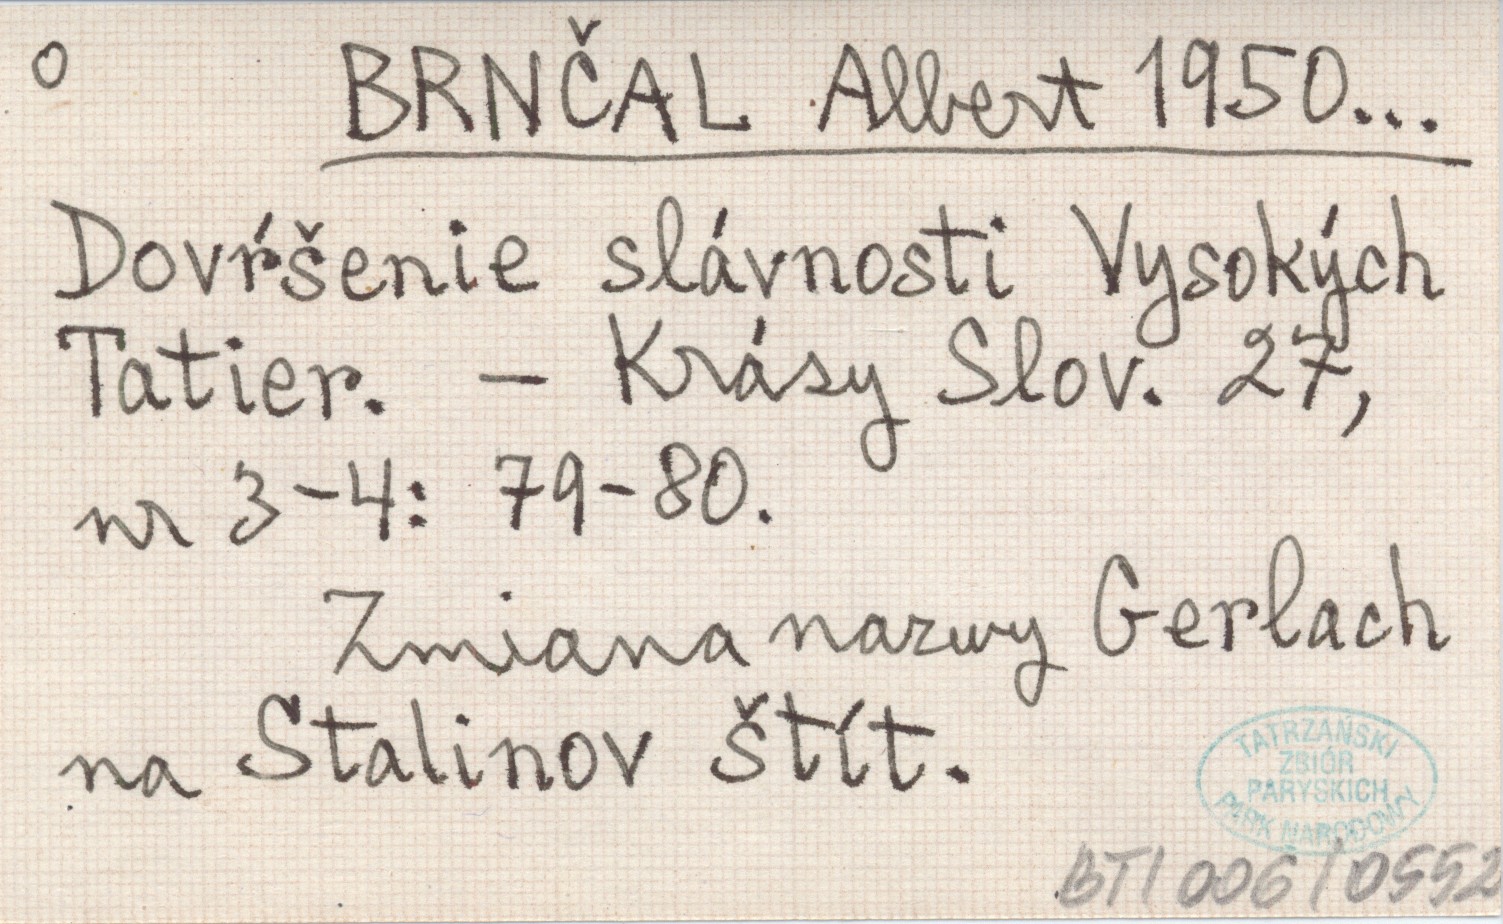 o BRNČAL Albert 1950...
Dovŕšenie slávnosti Vysokých
Tatier. – Krásy Slov. 27,
nr 3–4: 79–80.
Zmiana nazwy Gerlach
na Stalinov štít.
TATRZAŃSKI
ZBIÓR
PARYSKICH
PARK NARODOWY
BT/006/0552